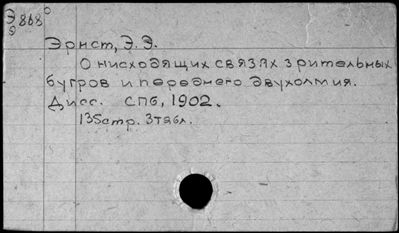 Э 868
Э
Эрнст, Э. Э.
О нисходящих связях зрительных
бугров и переднего двухолмия.
Дисс. СПб, 1902.
135стр. 3табл.